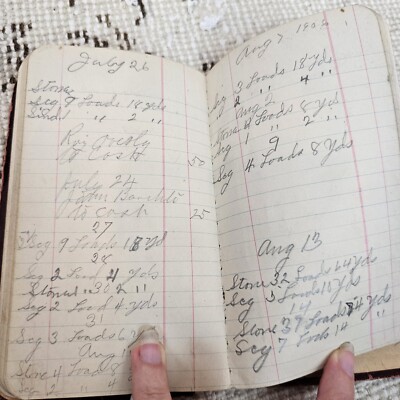 July 26
Stone
Scg 9 Loads 18 Yds
Sand 1 " 2 "
At Cost 50
July 24
John
At Cost 25
27
Scg 9 Loads 18 Yd
28
Scg 2 Load 4 Yds
Stone 1 " 30 2 "
Scg 2 Load 4 Yds
31
Scg 3 Loads 6 Yds
Aug 1
Stone 4 Loads 8
Scg 2 " 4
Aug 7
Scg 3 Loads 18 Yds
2 " 4 "
Aug 2
Stone 4 Loads 8 Yds
Scg 1 " 2 "
9
Scg 4 Loads 8 Yds
Aug 13
Stone 32 Loads 64 Yds
Scg 5 Loads Yds
14
Stone 37 Loads 84 Yds
Scg 7 Loads 14 "